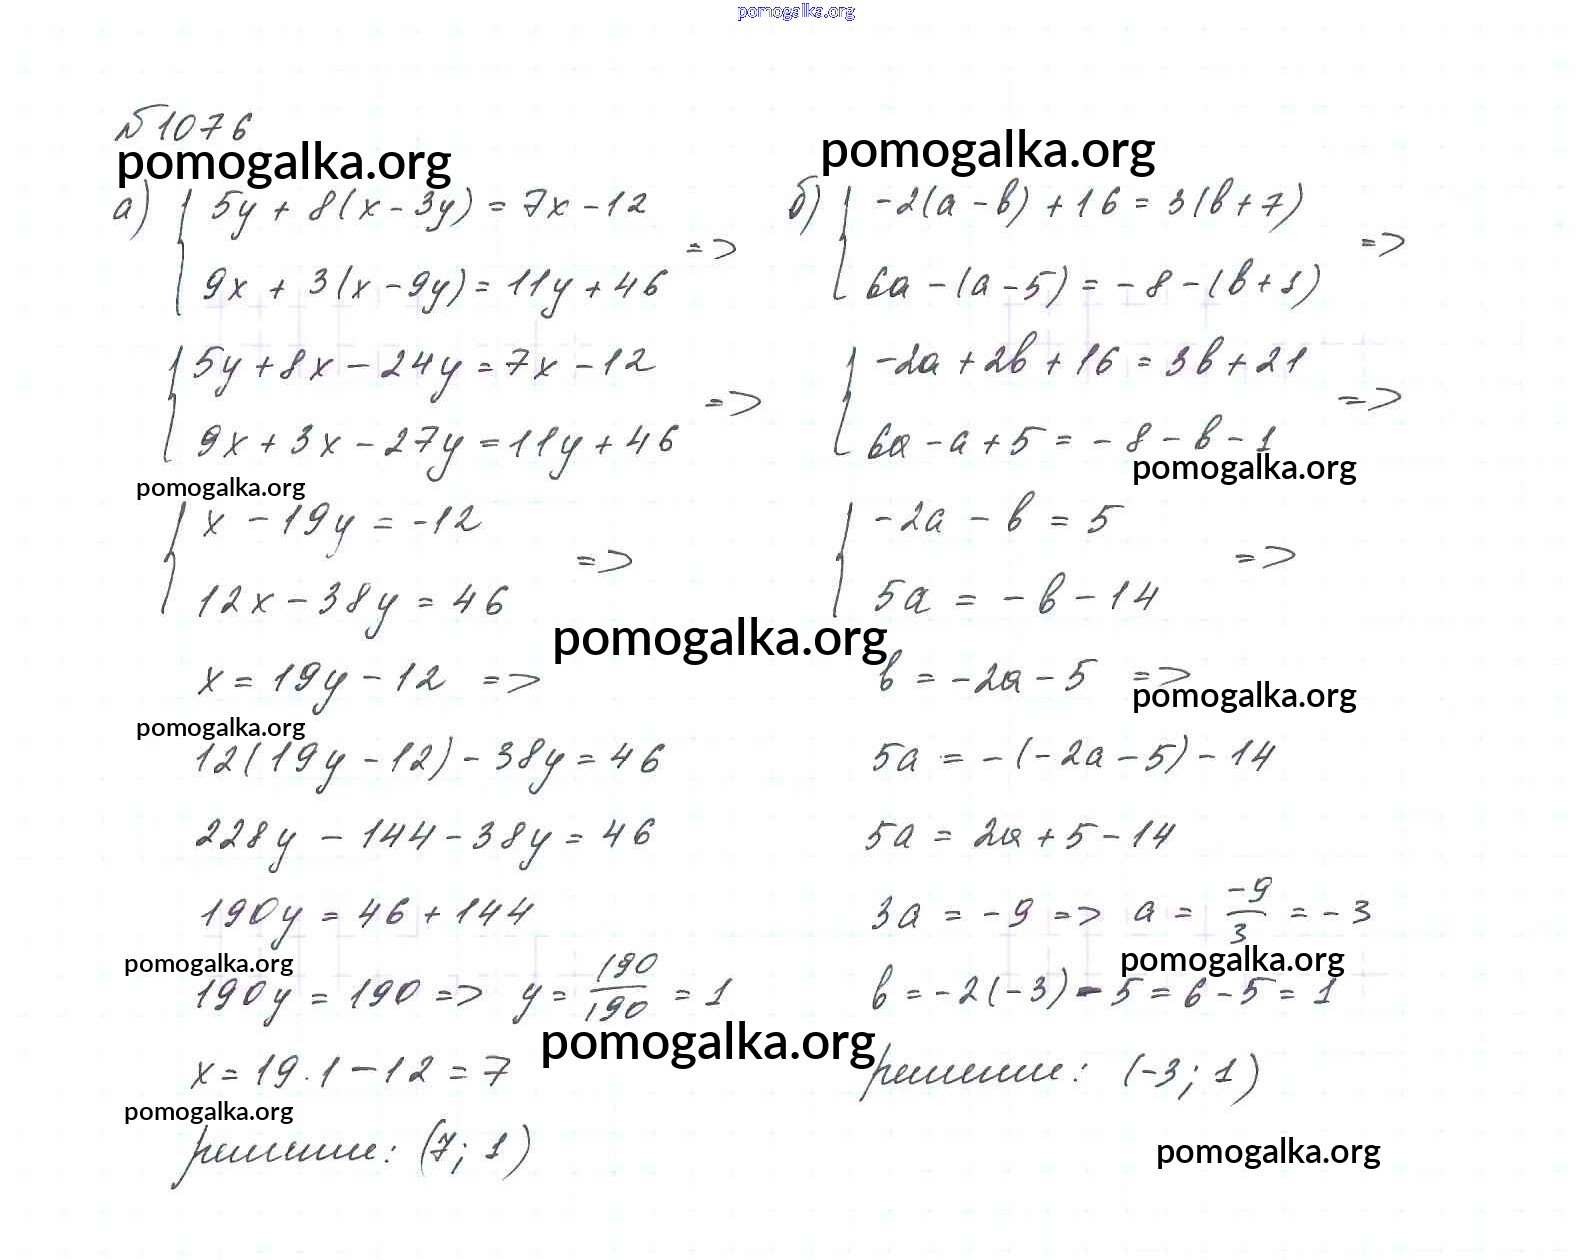 pomogalka.org
№1076
pomogalka.org
pomogalka.org
а) { 5y + 8(x - 3y) = 7x - 12
9x + 3(x - 9y) = 11y + 46 =>
{ 5y + 8x - 24y = 7x - 12
9x + 3x - 27y = 11y + 46 =>
pomogalka.org
{ x - 19y = -12
12x - 38y = 46 =>
pomogalka.org
x = 19y - 12 =>
pomogalka.org
12(19y - 12) - 38y = 46
228y - 144 - 38y = 46
190y = 46 + 144
pomogalka.org
190y = 190 => y = 190/190 = 1
pomogalka.org
x = 19 · 1 - 12 = 7
pomogalka.org
решение: (7; 1)
б) { -2(a - b) + 16 = 3(b + 7)
6a - (a - 5) = -8 - (b + 1) =>
{ -2a + 2b + 16 = 3b + 21
6a - a + 5 = -8 - b - 1 =>
pomogalka.org
{ -2a - b = 5
5a = -b - 14 =>
b = -2a - 5 =>
pomogalka.org
5a = -(-2a - 5) - 14
5a = 2a + 5 - 14
3a = -9 => a = -9/3 = -3
pomogalka.org
b = -2(-3) - 5 = 6 - 5 = 1
решение: (-3; 1)
pomogalka.org